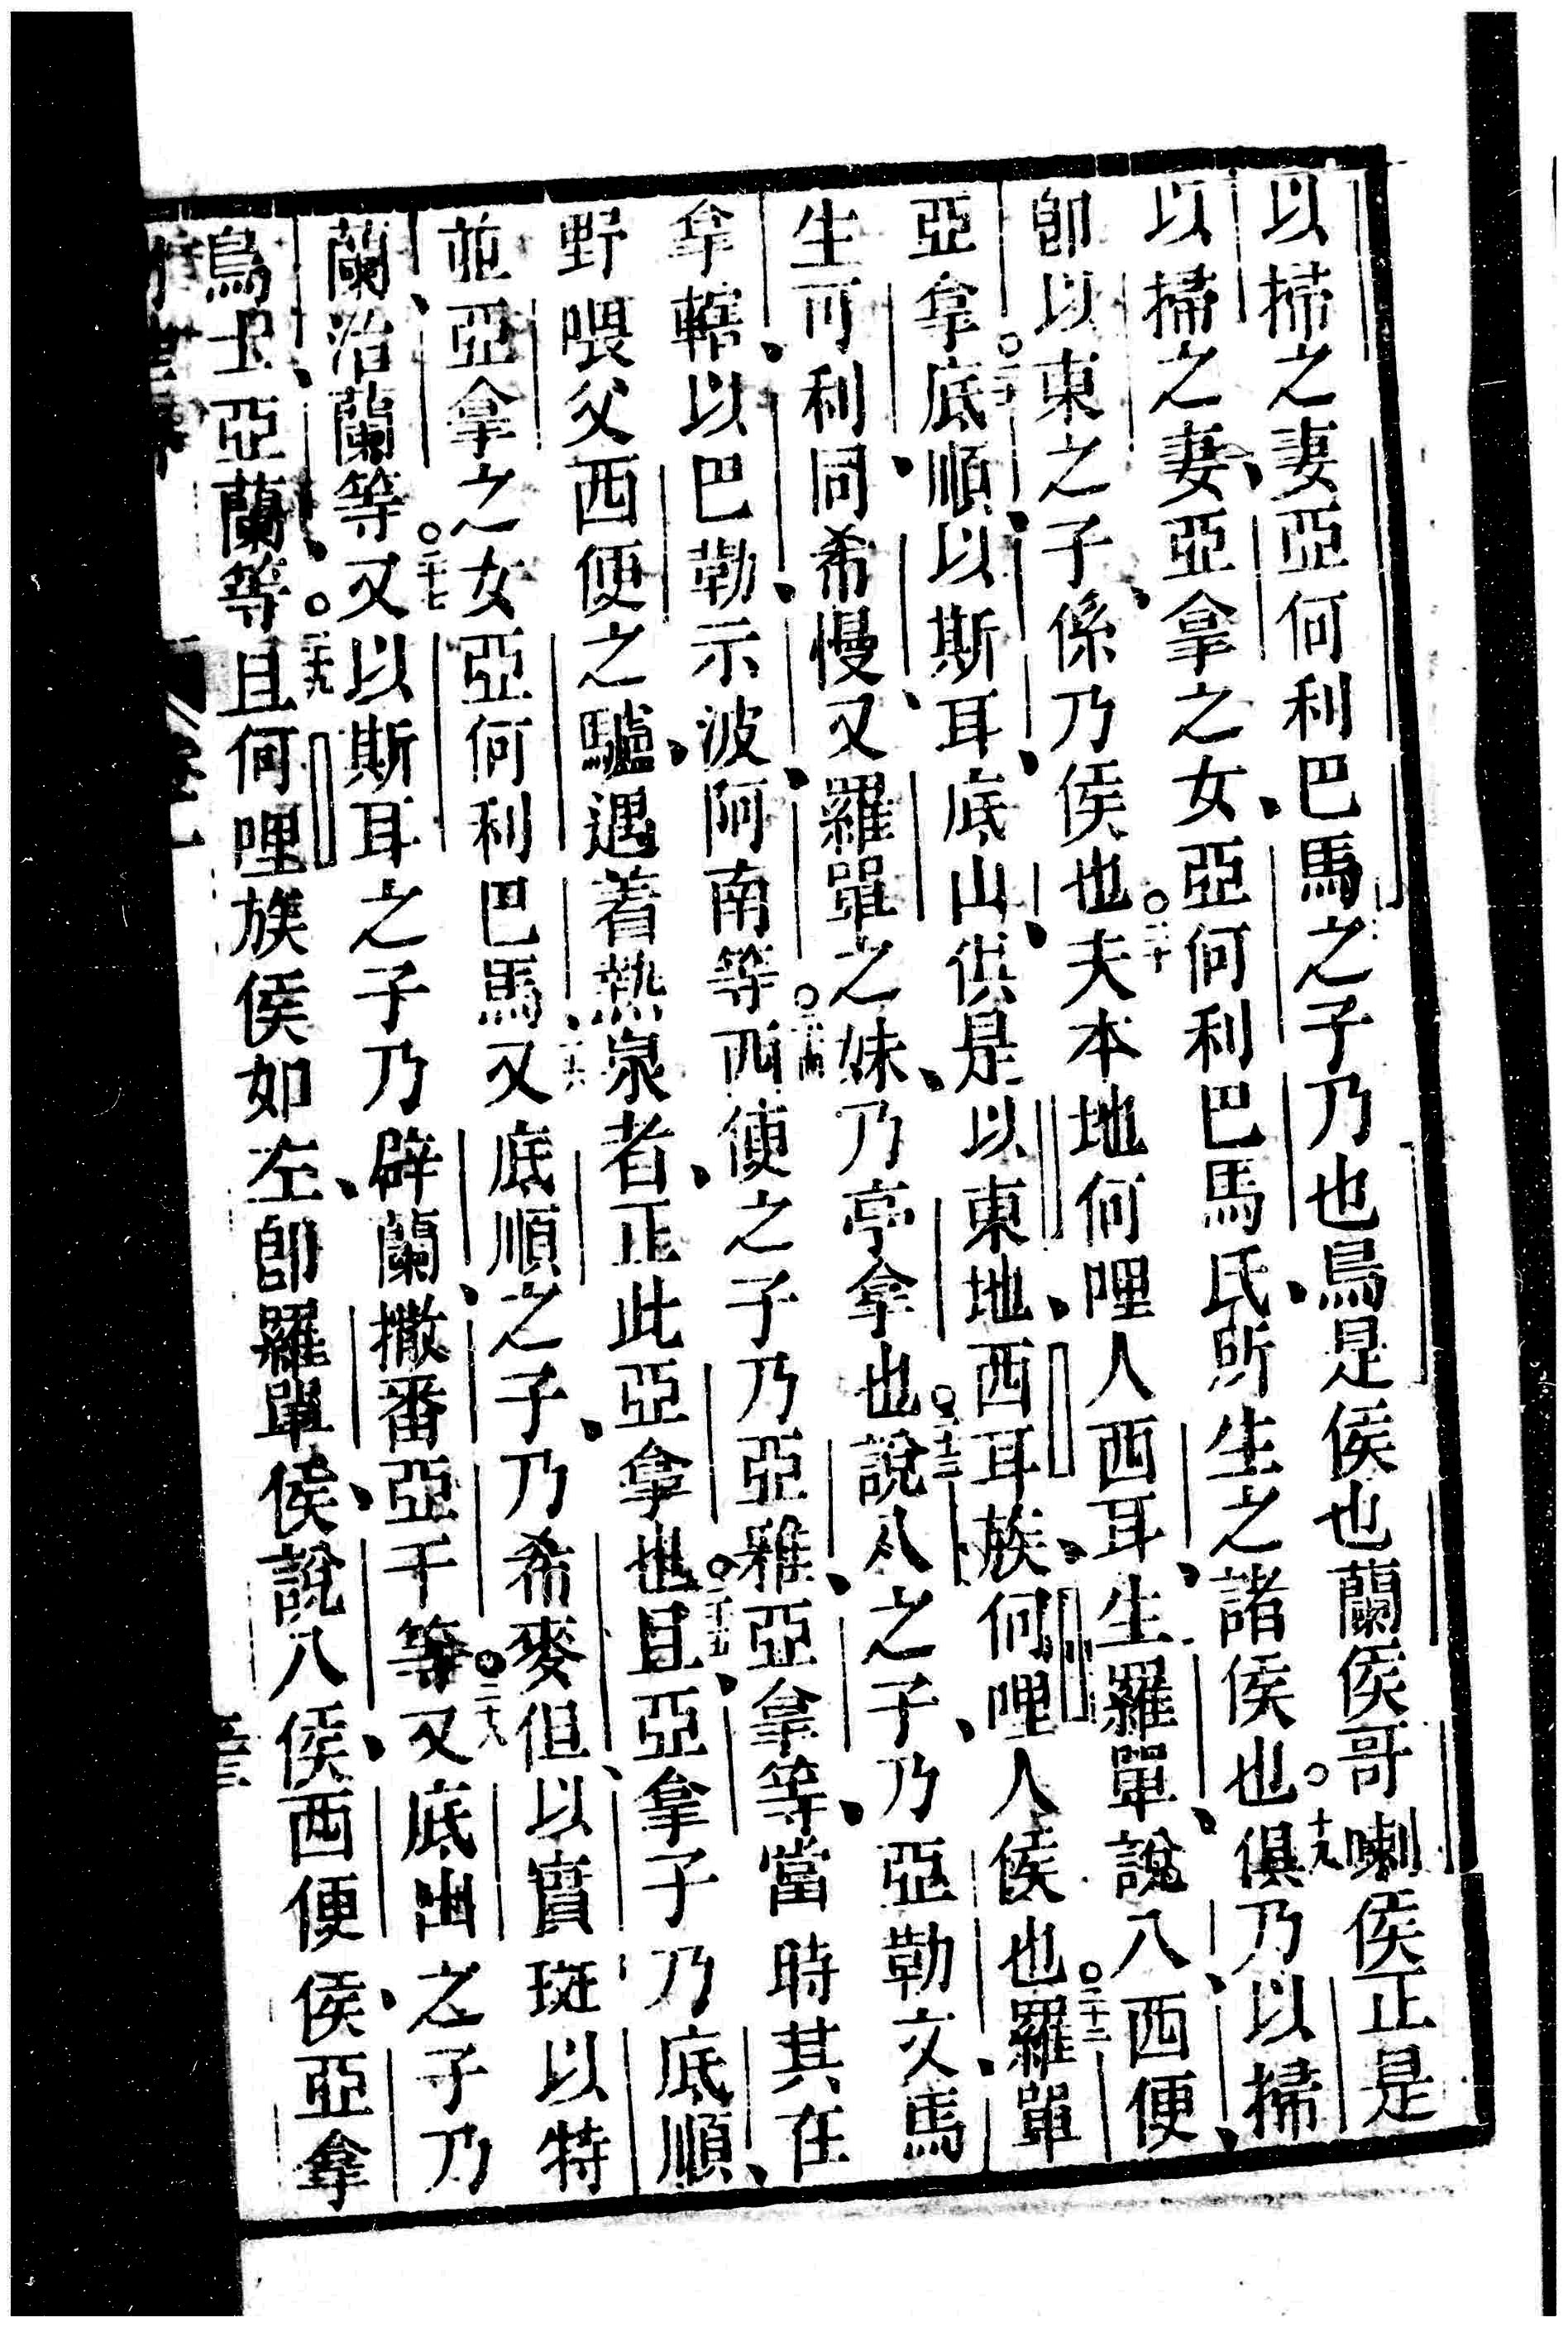 以掃之妻亞何利巴馬之子乃也烏是侯也蘭侯哥喇侯正是
以掃之妻亞拿之女亞何利巴馬氏所生之諸侯也○十九俱乃以掃
卽以東之子係乃侯也○二十夫本地何哩人西耳生羅單說八西便
亞拿底順○二十一以斯耳底山供是以東地西耳族何哩人侯也○二十二羅單
生可利同希慢又羅單之妹乃亭拿也○二十三說八之子乃亞勒文馬
拿轄以巴勒示波阿南等○二十四西便之子乃亞雅亞拿等當時其在
野喂父西便之驢遇着熱泉者正此亞拿也○二十五且亞拿子乃底順
並亞拿之女亞何利巴馬○二十六又底順之子乃希麥但以實斑以特
蘭治蘭等○二十七又以斯耳之子乃辟蘭撒番亞干等○二十八又底出之子乃
烏士亞蘭等○二十九且何哩族侯如左卽羅單侯說八侯西便侯亞拿